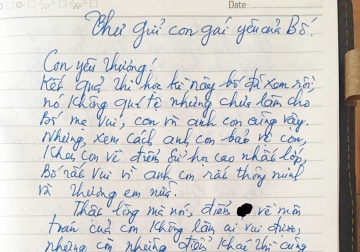 Date
Thư gửi con gái yêu của Bố.
Con yêu thương!
Kết quả thi học kì này bố đã xem rồi,
nó không quá tệ nhưng chưa làm cho
Bố mẹ vui, con và anh con cũng vậy.
Nhưng, xem cách anh con bảo vệ con,
Khoe con về điểm sử học cao nhất lớp,
Bố rất vui vì anh em rất thông minh
và thương em nữa.
Thật lòng mà nói, điểm về môn
toán của em không làm ai vui được,
nhưng em những điểm khác thì cũng